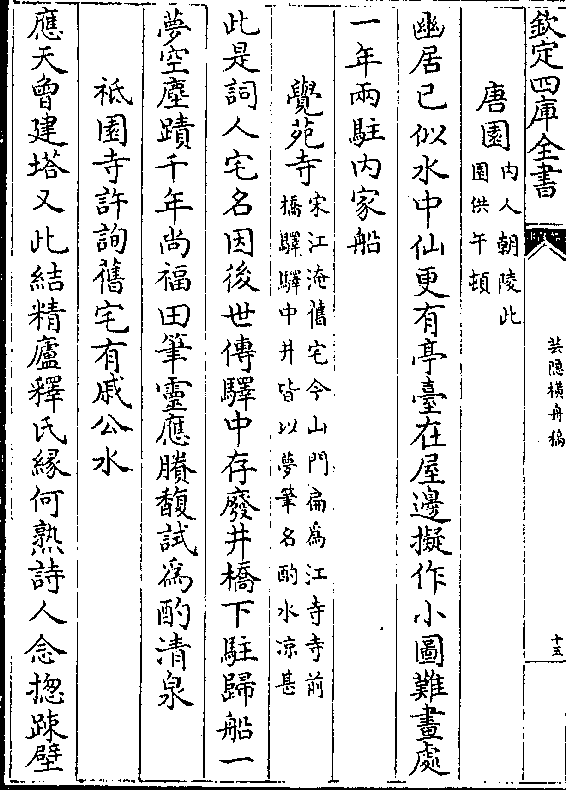 欽定四庫全書
芸隠橫舟稿
十五
唐園
内人朝陵此
園供午頓
幽居已似水中仙更有亭臺在屋邊擬作小圖難畫處
一年兩駐内家船
覺苑寺
宋江淹舊宅今山門扁爲江寺寺前
橋驛驛中井皆以夢筆名酌水凉甚
此是詞人宅名因後世傳驛中存廢井橋下駐歸船一
夢空塵蹟千年尚福田筆靈應賸馥試爲酌清泉
祗園寺許詢舊宅有戚公水
應天曾建塔又此結精廬釋氏緣何熟詩人念揔踈壁